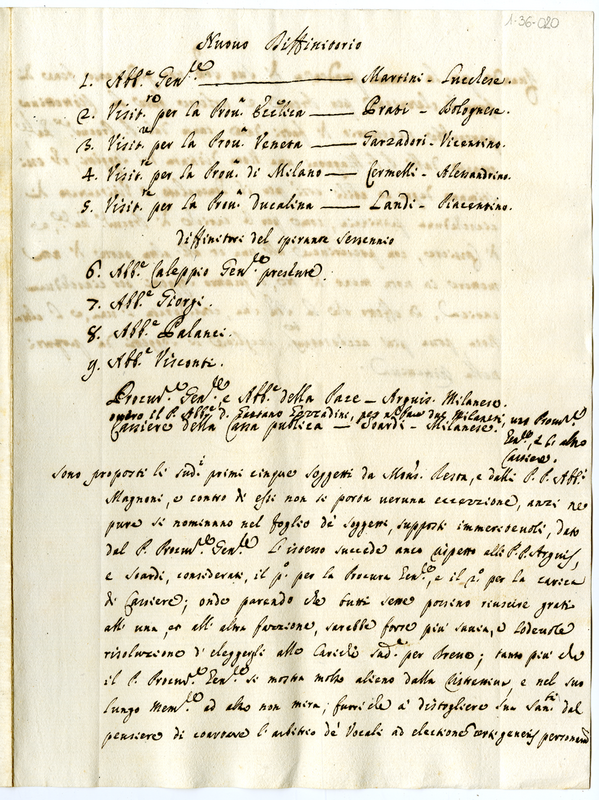 1-36-020
Nuovo Diffinitorio
1. Abb.e Gen.le — Martini - Lucchese.
2. Visit.ro per la Prov.a Eccl.ca — Prati - Bolognese.
3. Visit.re per la Prov.a Veneta — Garzadori - Vicentino.
4. Visit.re per la Prov.a di Milano — Cermelli - Alessandrino.
5. Visit.re per la Prov.a Ducalina — Landi - Piacentino.
Diffinitori del spirante sessennio
6. Abb.e Caleppio Gen.le presente.
7. Abb.e Giorgi.
8. Abb.e Palanci.
9. Abb.e Visconti.
Procur.e Gen.le e Abb.e della Pace - Arguis. Milanese.
overo il P. Abb.e D. Gaetano per non far due Milanesi, uno Procur.e
Cassiere della Cassa publica - Soardi - Milanese. Gen.le, e l'altro
Cassiere.
Sono proposti li sud.i primi cinque soggetti da Mons.r Resta, e dalli P.P. Abb.i
Magnoni, e contro di essi non si porta veruna eccezzione, anzi ne
pure si nominano nel foglio de' soggetti, supposti immeritevoli, dato
dal P. Procur.e Gen.le Lo istesso succede anco rispetto alli P.P. Arguis,
e Soardi, considerati, il p.o per la Procura Gen.le, e il 2.o per la carica
di Cassiere; onde parendo che tutti sette possino riuscire grati
all' una, et all' altra fazzione, sarebbe forse più savia, e lodevole
risoluzione d' eleggerli alle Cariche sud.e per Breve; tanto più che
il P. Procur.e Gen.le si mostra molto alieno dalla e nel suo
lungo Mem.le ad altro non mira, fuori che a' distogliere Sua San.tà dal
pensiere di coarctare l'arbitrio de' Vocali ad electione certi generis personarum